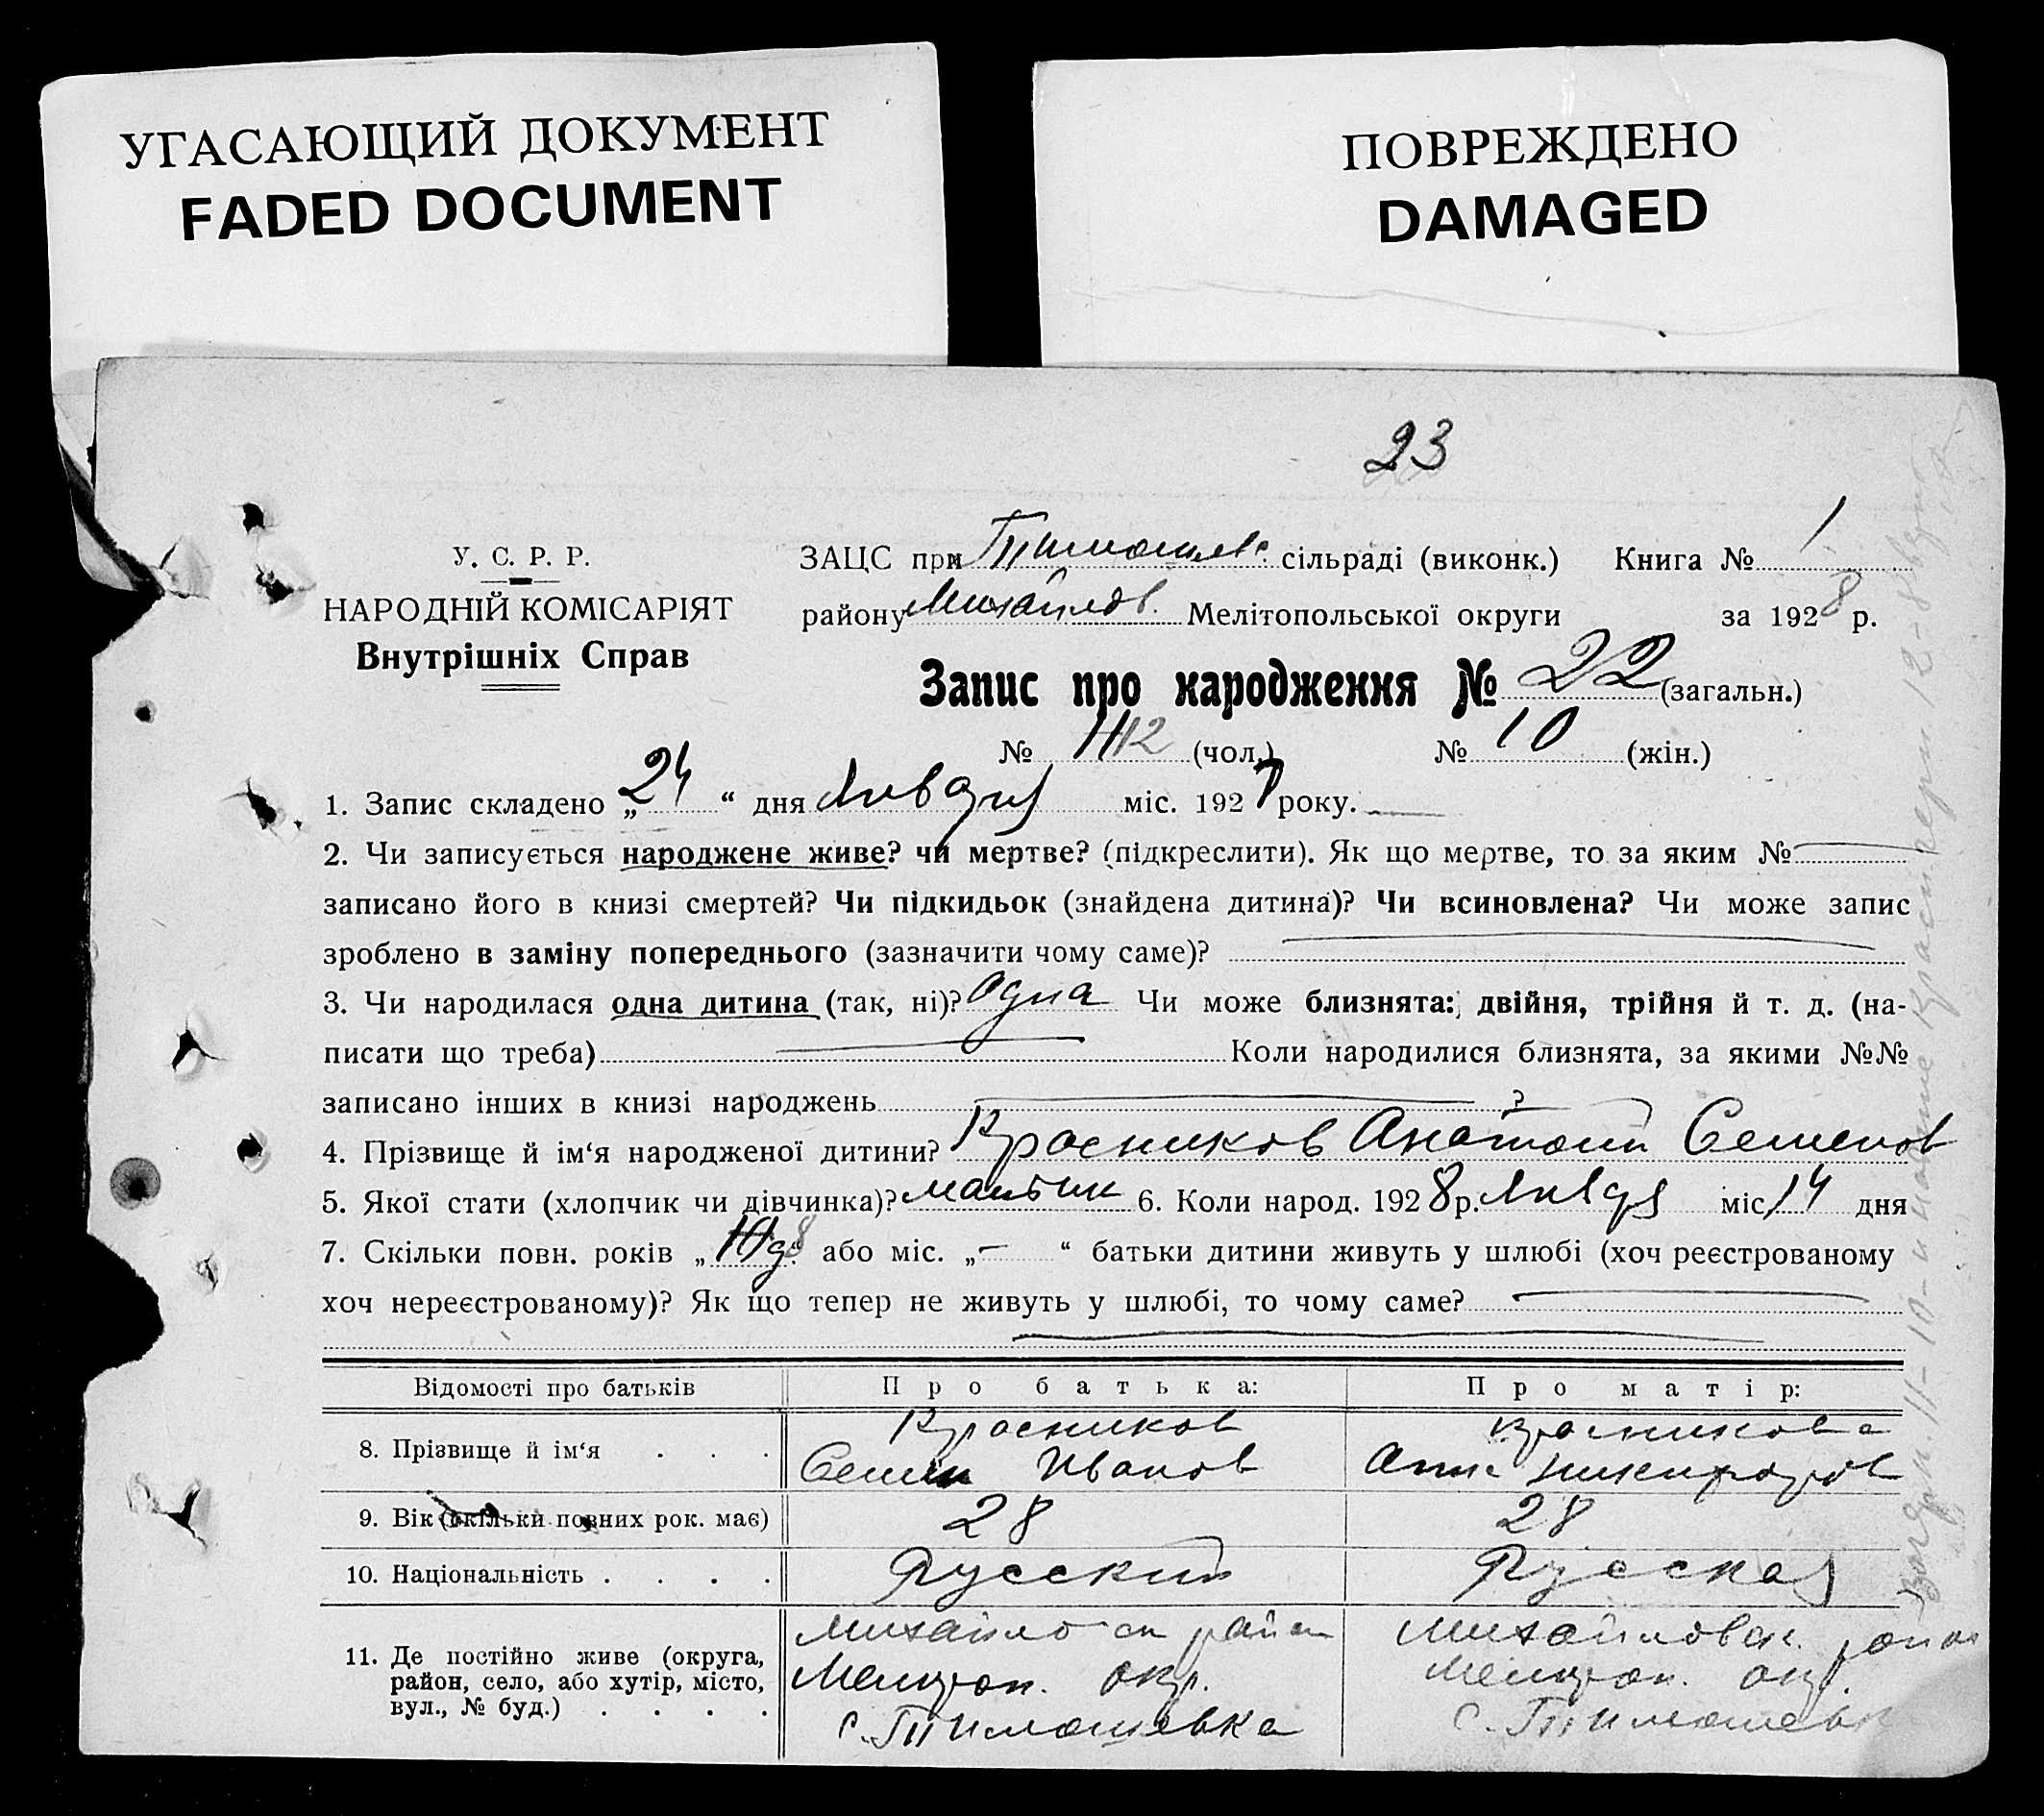 УГАСАЮЩИЙ ДОКУМЕНТ
FADED DOCUMENT
ПОВРЕЖДЕНО
DAMAGED
23
У. С. Р. Р.
НАРОДНІЙ КОМІСАРІЯТ
Внутрішніх Справ
ЗАЦС при Тимошевс. сільраді (виконк.) Книга № 1
району Михайлов. Мелітопольської округи за 1928 р.
Запис про народження № 22 (загальн.)
№ 11 12 (чол.) № 10 (жін.)
1. Запис складено „24“ дня Января міс. 1928 року.
2. Чи записується народжене живе? чи мертве? (підкреслити). Як що мертве, то за яким №
записано його в книзі смертей? Чи підкидьок (знайдена дитина)? Чи всиновлена? Чи може запис
зроблено в заміну попереднього (зазначити чому саме)?
3. Чи народилася одна дитина (так, ні)? Одна Чи може близнята: двійня, трійня й т. д. (на-
писати що треба) Коли народилися близнята, за якими №№
записано інших в книзі народжень ?
4. Прізвище й ім‘я народженої дитини? Красников Анатолий Семенов
5. Якої стати (хлопчик чи дівчинка)? мальчик 6. Коли народ. 1928 р. Января міс. 14 дня
7. Скільки повн. років „ 8 “ або міс. „—“ батьки дитини живуть у шлюбі (хоч реєстрованому
хоч нереєстрованому)? Як що тепер не живуть у шлюбі, то чому саме?
Відомості про батьків Про батька: Про матір:
8. Прізвище й ім‘я . . . Красников Красникова
Семен Иванов Анна Никифоров
9. Вік (скільки повних рок. має) 28 28
10. Національність . . . . Русский Русская
11. Де постійно живе (округа, район, село, або хутір, місто, вул., № буд.) . . . .
Михайловск район Михайловск. район
Мелитоп. окр. Мелитоп. окр.
с. Тимошевка с. Тимошевк